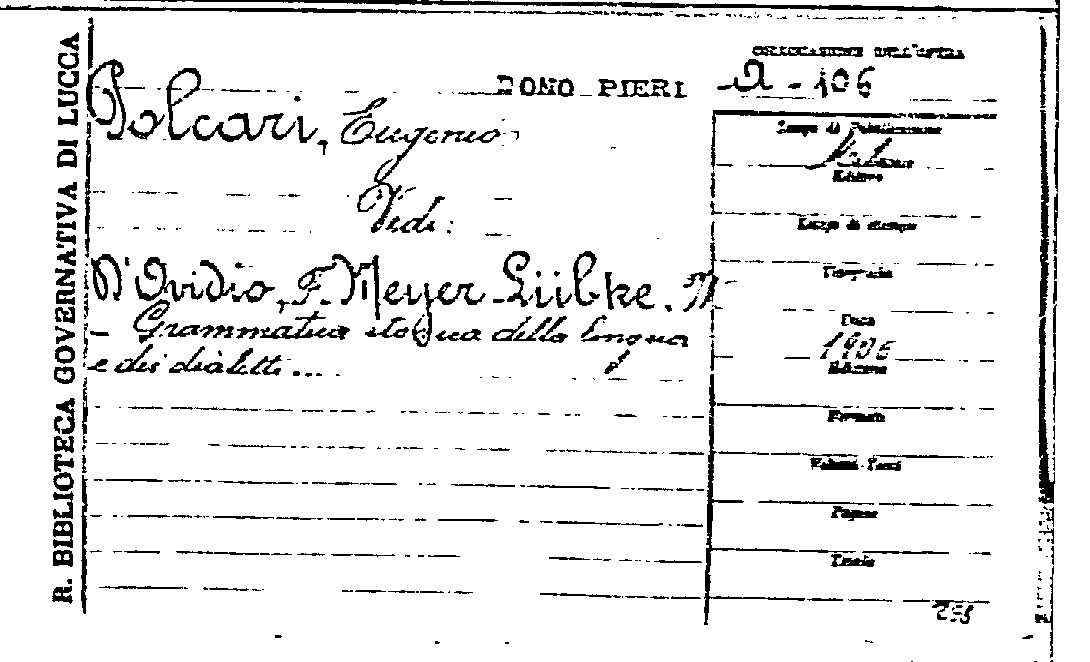 R. BIBLIOTECA GOVERNATIVA DI LUCCA
COLLOCAZIONE DELL'OPERA
DONO PIERI
A - 106
Polcari, Eugenio
Vidi:
D'Ovidio, F. Meyer-Lübke. W
- Grammatica storica della lingua
e dei dialetti ...
Luogo di Pubblicazione
Milano
Editore
Luogo di stampa
Tipografia
Data
1906
Edizione
Formato
Volumi-Tomi
Pagine
Tavole